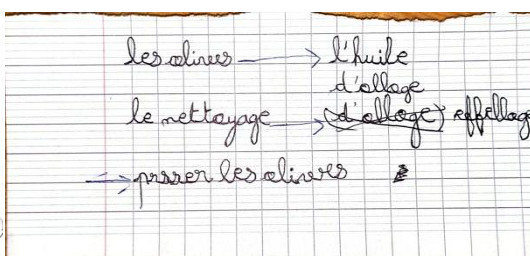 les olives → l'huile
d'allage
le nettoyage → (d'allage) effellage
→ prsser les olives